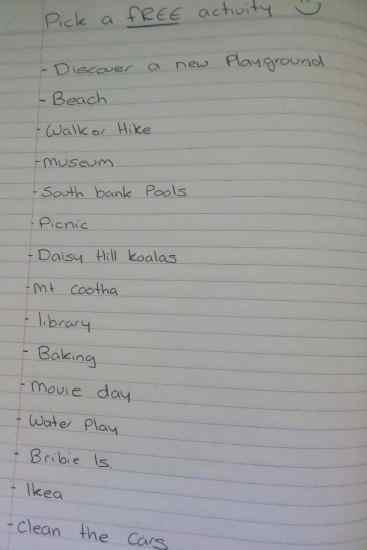 Pick a FREE activity
- Discover a new Playground
- Beach
- Walk or Hike
- museum
- South bank Pools
- Picnic
- Daisy Hill koalas
- mt cootha
- library
- Baking
- movie day
- Water Play
- Bribie Is
- Ikea
- Clean the cars